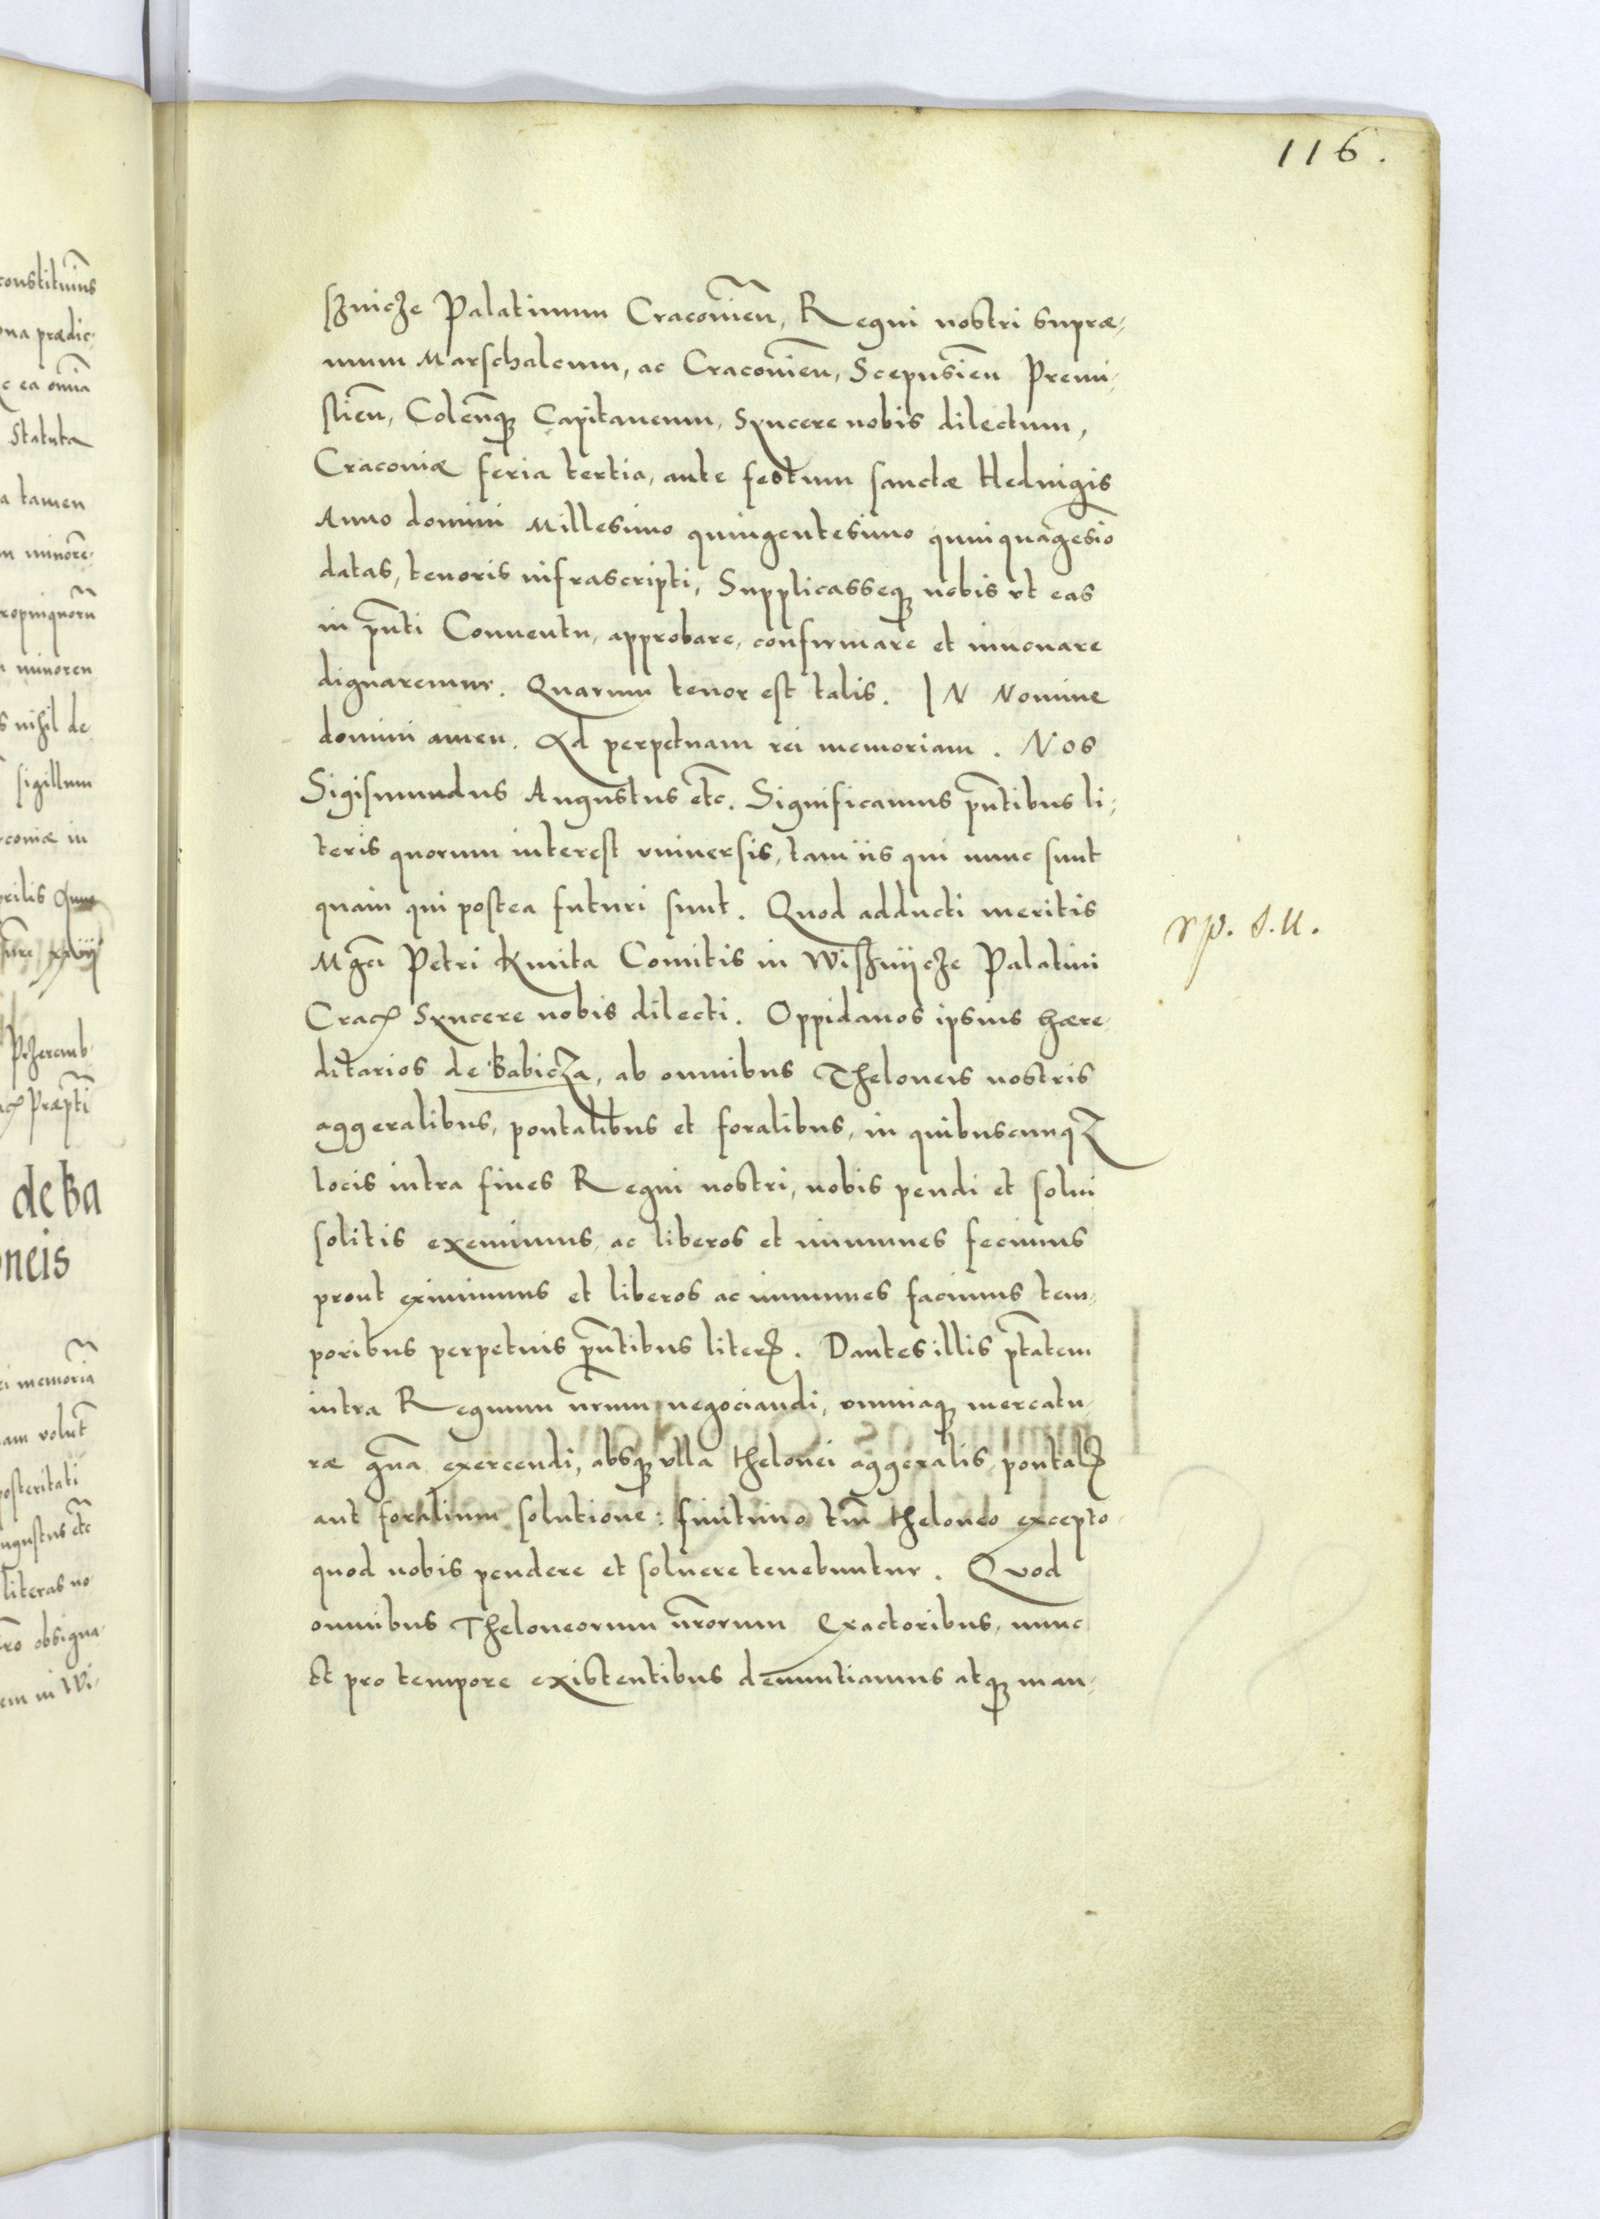 116.
sznicze Palatinum Cracovien̄, Regni nostri supræ-
mum Marschalcum, ac Cracovien̄, Scepusien̄ Premi-
slien̄, Colen̄q3 Capitaneum, Syncere nobis dilectum,
Cracoviæ feria tertia, ante festum sanctæ Heduigis
Anno domini Millesimo quingentesimo quinquagesio
datas, tenoris infrascripti, Supplicasseq3 nobis vt eas
in pn̄ti Conuentu, approbare, confirmare et innouare
dignaremur. Quarum tenor est talis. IN Nomine
domini amen. Ad perpetuam rei memoriam. Nos
Sigismundus Augustus etc̄. Significamus pn̄tibus li-
teris quorum interest vniuersis, tam iis qui nunc sunt
quam qui postea futuri sunt. Quod adducti meritis
Mgci Petri Kmita Comitis in Wisznijcze Palatini
Crac̄ Syncere nobis dilecti. Oppidanos ipsius hære-
ditarios de Babicza, ab omnibus Theloneis nostris
aggeralibus, pontalibus et foralibus, in quibuscunq3
locis intra fines Regni nostri, nobis pendi et solui
solitis exemimus, ac liberos et immunes fecimus
prout eximimus et liberos ac immunes facimus tem-
poribus perpetuis pn̄tibus liter3. Dantes illis ptātem
intra Regnum nr̄um negociandi, omniaq3 mercatu-
ræ gn̄a exercendi, absq3 vlla thelonei aggeralis, pontal3
aut foralium solutione: finitimo tm̄ theloneo excepto
quod nobis pendere et soluere tenebuntur. Quod
omnibus Theloneorum nr̄orum Exactoribus, nunc
Et pro tempore existentibus denuntiamus atq3 man-